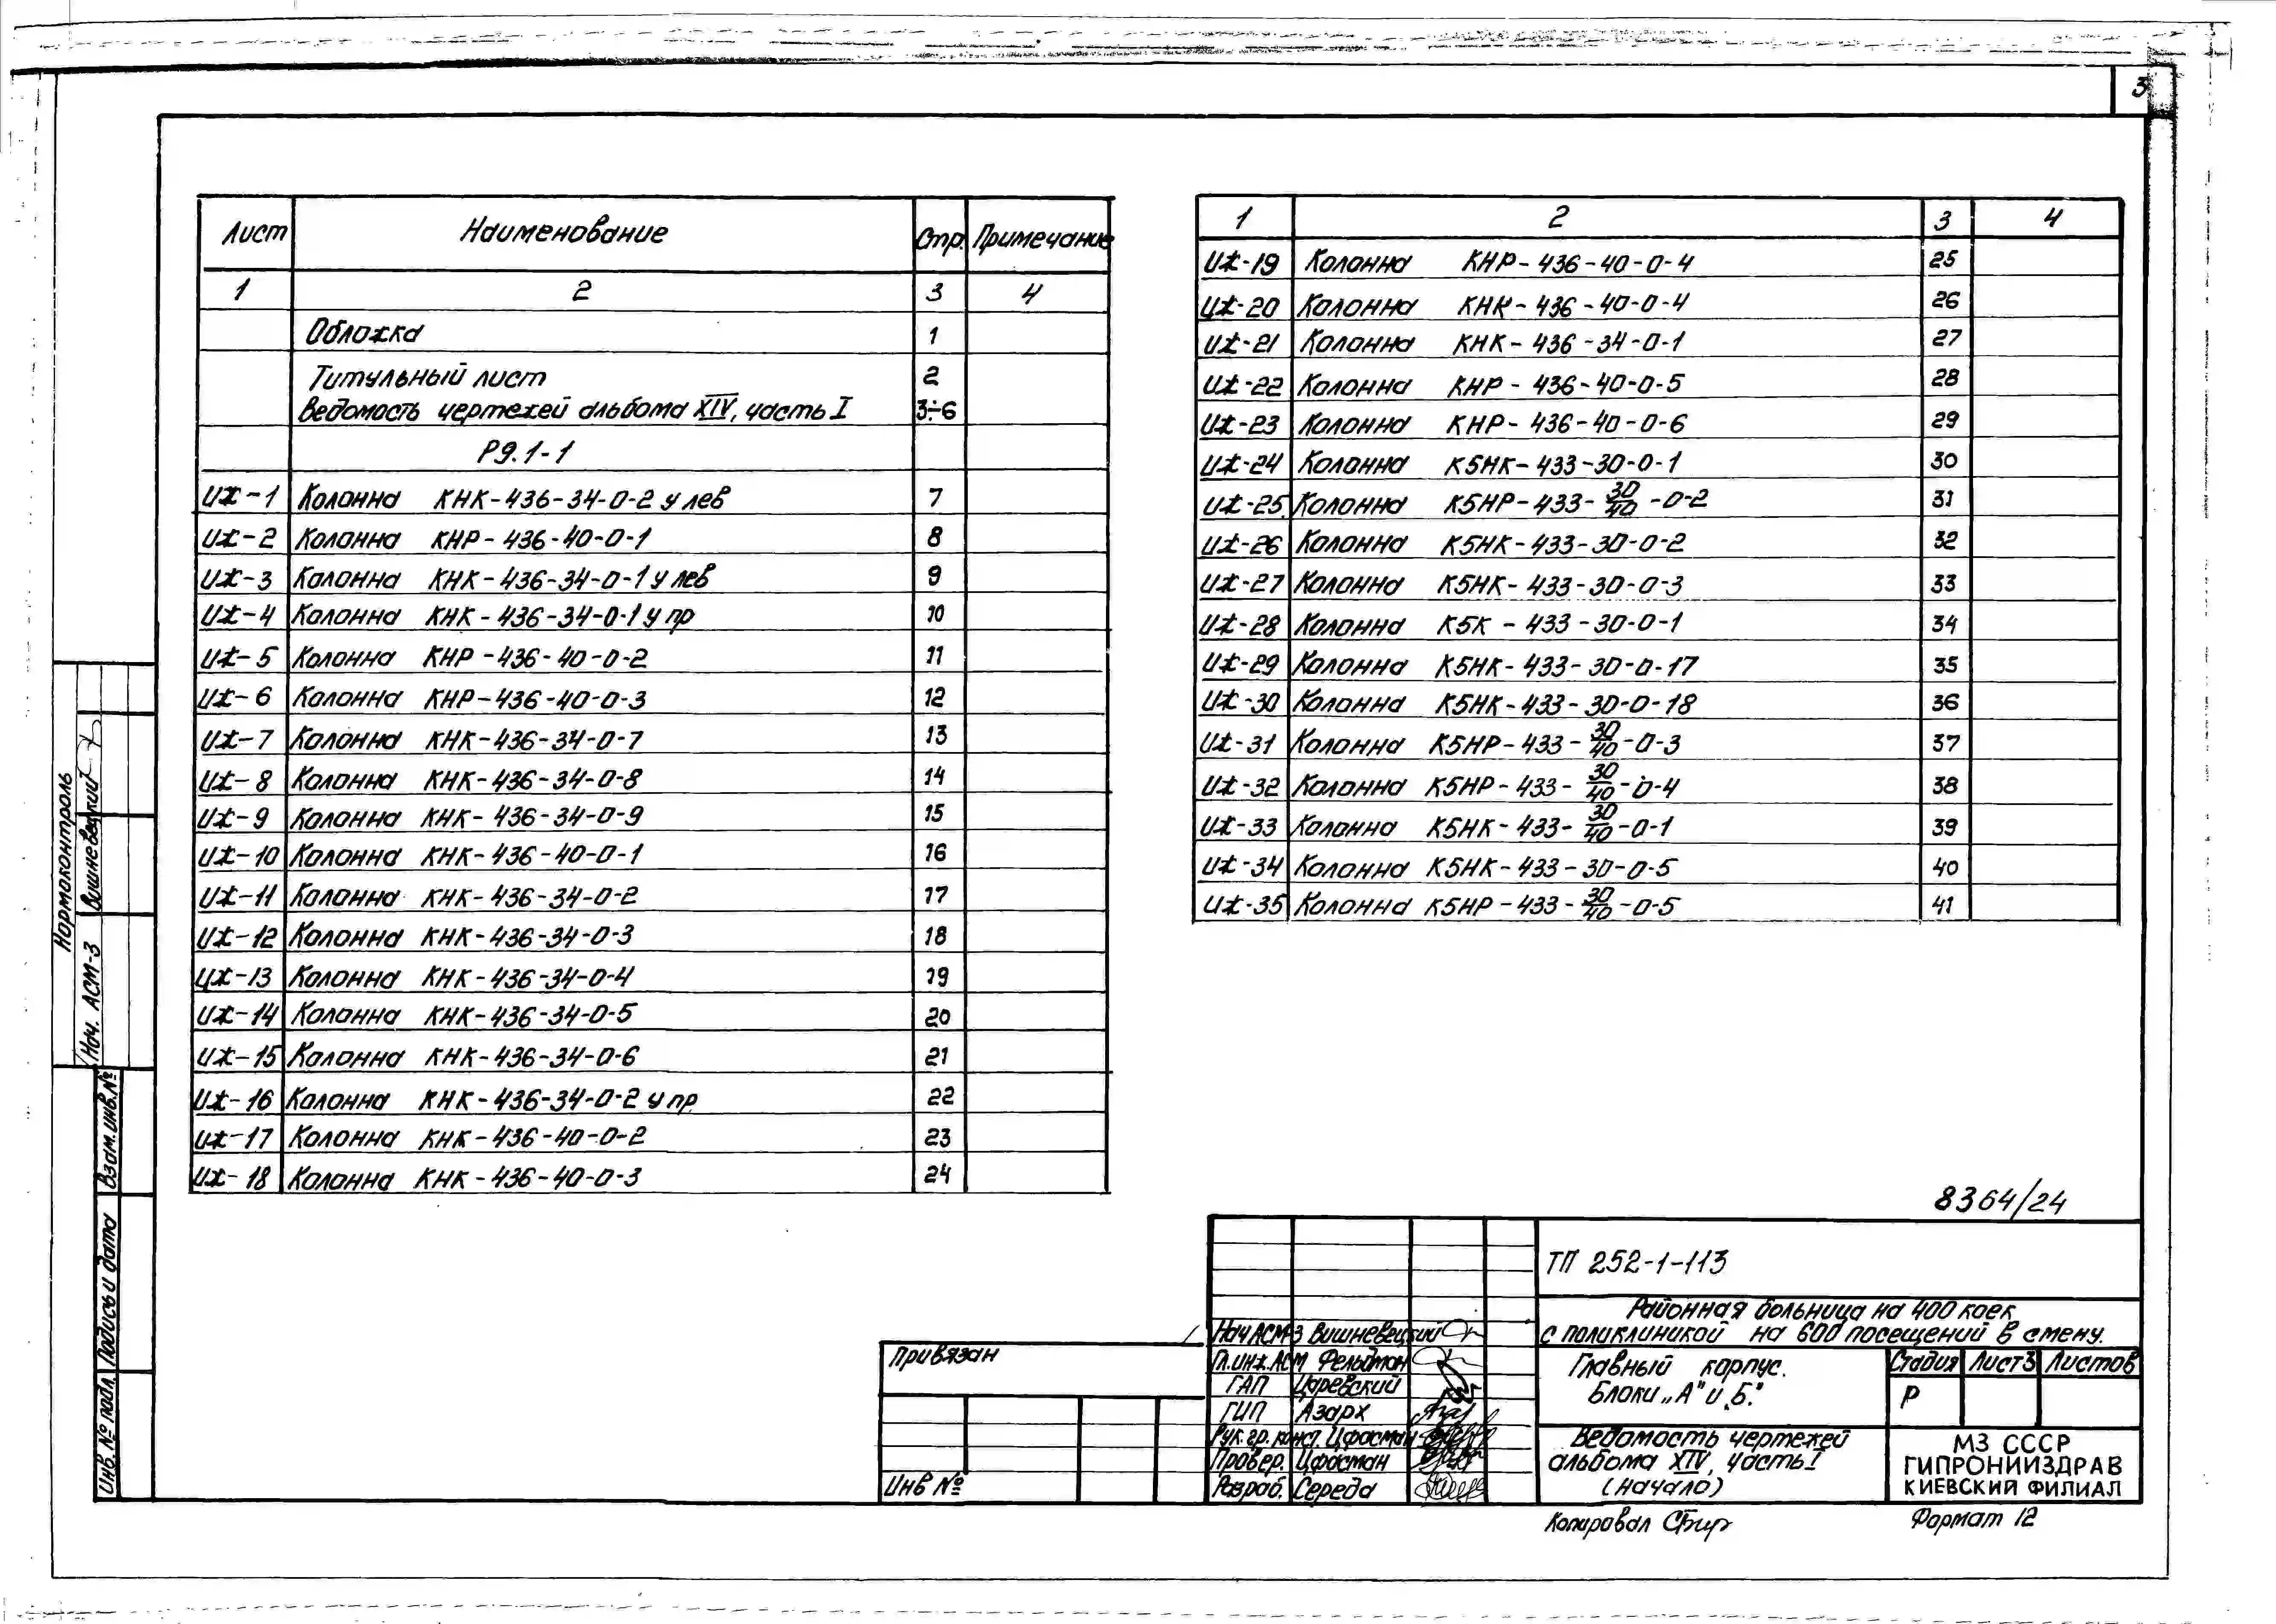 3
Лист Наименование Стр. Примечание
1 2 3 4
Обложка 1
Титульный лист 2
Ведомость чертежей альбома XIV, часть I 3÷6
Р9.1-1
ИЖ-1 Колонна КНК-436-34-0-2 у лев 7
ИЖ-2 Колонна КНР-436-40-0-1 8
ИЖ-3 Колонна КНК-436-34-0-1 у лев 9
ИЖ-4 Колонна КНК-436-34-0-1 у пр 10
ИЖ-5 Колонна КНР-436-40-0-2 11
ИЖ-6 Колонна КНР-436-40-0-3 12
ИЖ-7 Колонна КНК-436-34-0-7 13
ИЖ-8 Колонна КНК-436-34-0-8 14
ИЖ-9 Колонна КНК-436-34-0-9 15
ИЖ-10 Колонна КНК-436-40-0-1 16
ИЖ-11 Колонна КНК-436-34-0-2 17
ИЖ-12 Колонна КНК-436-34-0-3 18
ИЖ-13 Колонна КНК-436-34-0-4 19
ИЖ-14 Колонна КНК-436-34-0-5 20
ИЖ-15 Колонна КНК-436-34-0-6 21
ИЖ-16 Колонна КНК-436-34-0-2 у пр 22
ИЖ-17 Колонна КНК-436-40-0-2 23
ИЖ-18 Колонна КНК-436-40-0-3 24
1 2 3 4
ИЖ-19 Колонна КНР-436-40-0-4 25
ИЖ-20 Колонна КНК-436-40-0-4 26
ИЖ-21 Колонна КНК-436-34-0-1 27
ИЖ-22 Колонна КНР-436-40-0-5 28
ИЖ-23 Колонна КНР-436-40-0-6 29
ИЖ-24 Колонна К5НК-433-30-0-1 30
ИЖ-25 Колонна К5НР-433-30/40-0-2 31
ИЖ-26 Колонна К5НК-433-30-0-2 32
ИЖ-27 Колонна К5НК-433-30-0-3 33
ИЖ-28 Колонна К5К-433-30-0-1 34
ИЖ-29 Колонна К5НК-433-30-0-17 35
ИЖ-30 Колонна К5НК-433-30-0-18 36
ИЖ-31 Колонна К5НР-433-30/40-0-3 37
ИЖ-32 Колонна К5НР-433-30/40-0-4 38
ИЖ-33 Колонна К5НК-433-30/40-0-1 39
ИЖ-34 Колонна К5НК-433-30-0-5 40
ИЖ-35 Колонна К5НР-433-30/40-0-5 41
8364/24
ТП 252-1-113
Районная больница на 400 коек
с поликлиникой на 600 посещений в смену.
Нач АСМ-3 Вишневецкий
Гл. инж. АСМ Фельдман
ГАП Царевский
ГИП Азарх
Рук. гр. конст. Цфасман
Провер. Цфасман
Разраб. Середа
Главный корпус.
Блоки „А" и „Б".
Стадия Лист3 Листов
Р
Ведомость чертежей
альбома XIV, часть I
(начало)
МЗ СССР
ГИПРОНИИЗДРАВ
КИЕВСКИЙ ФИЛИАЛ
Привязан
Инв №
Копировал
Формат 12
Нормоконтроль
Нач. АСМ-3 Вишневецкий
Взам. инв. №
Подпись и дата
Инв. № подл.